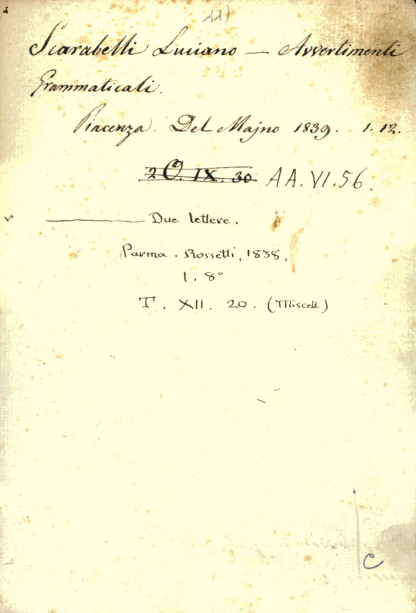 Scarabelli Luciano — Avvertimenti
Grammaticali.
Piacenza. Del Majno 1839. 1. 12.
2O. IX. 30 AA. VI. 56.
——— Due lettere.
Parma. Rossetti, 1838.
1. 8°
T. XII. 20. (Miscell)
C